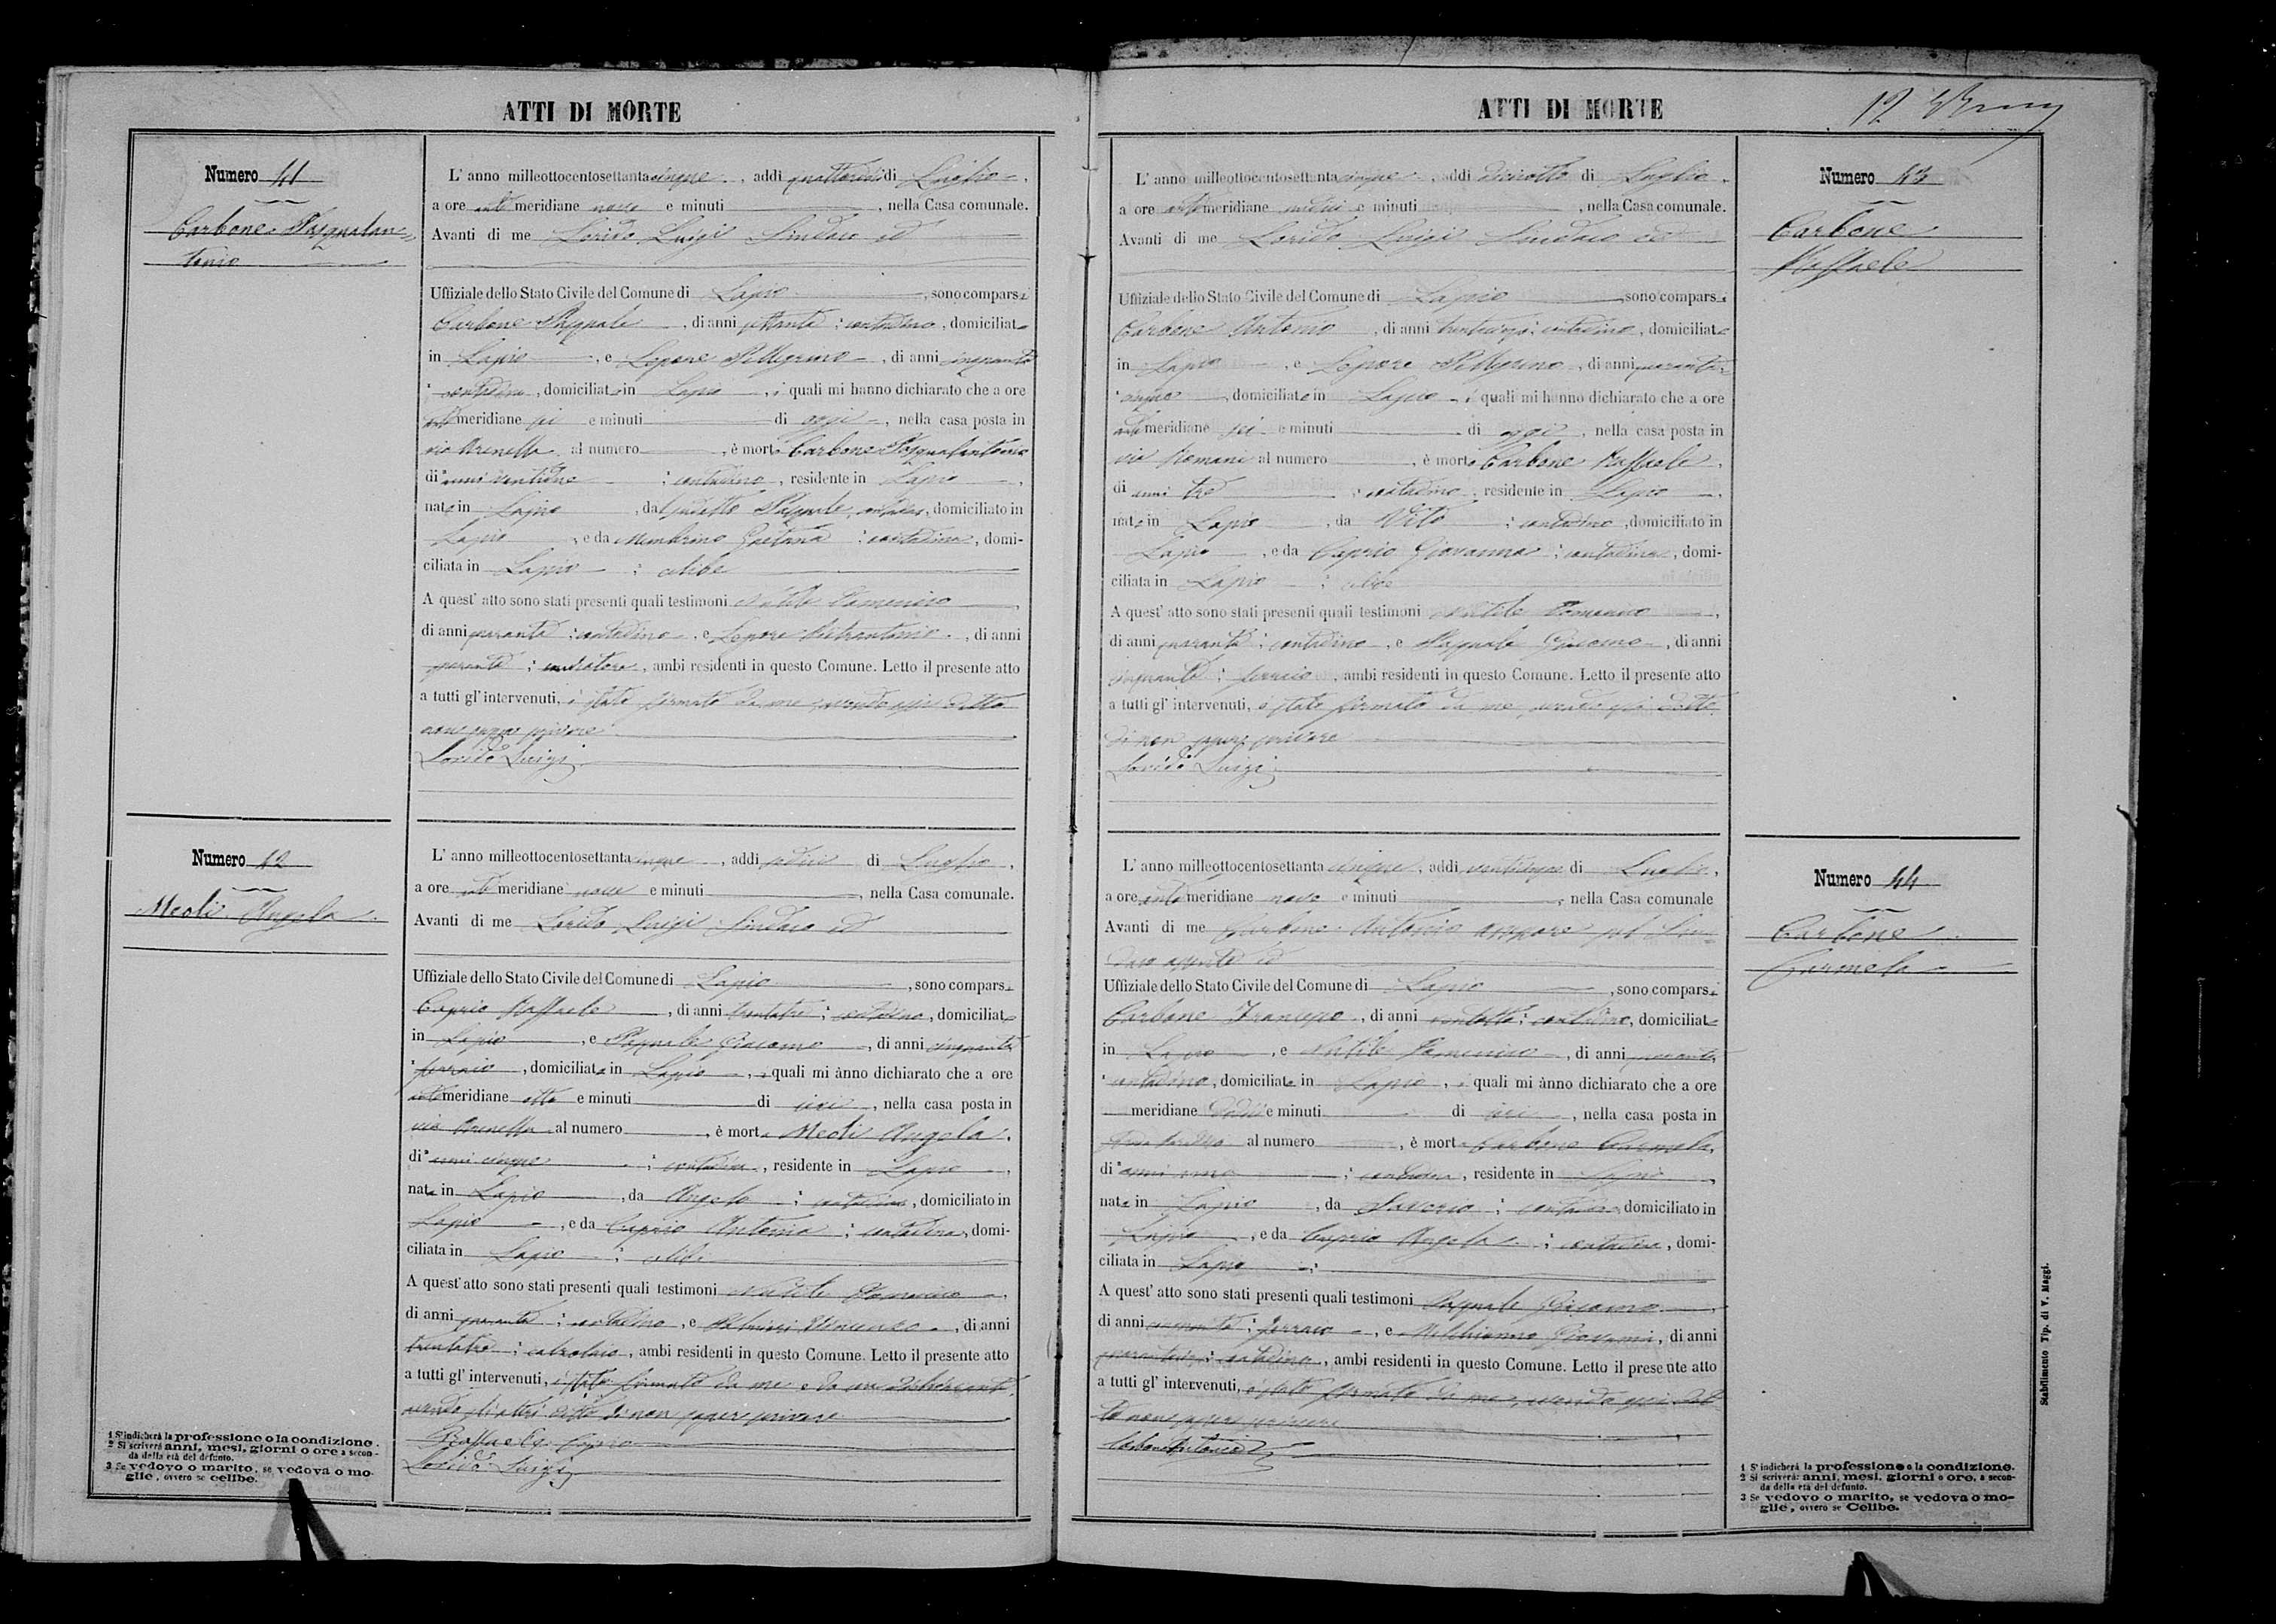 ATTI DI MORTE
Numero 41
Carbone Pasqualan-
tonio
L' anno milleottocentosettantacinque, addi quattordici di Luglio,
a ore anti meridiane nove e minuti , nella Casa comunale.
Avanti di me Lorido Luigi Sindaco ed
Uffiziale dello Stato Civile del Comune di Lapio, sono comparsi
Carbone Pasquale, di anni settanta; contadino, domiciliato
in Lapio, e Lepore Pellegrino, di anni cinquanta
contadino, domiciliato in Lapio, i quali mi hanno dichiarato che a ore
anti meridiane sei e minuti di oggi, nella casa posta in
via Arenella al numero , è morto Carbone Pasqualantonio
di anni ; contadino, residente in Lapio,
nato in Lapio, da Pasquale, contadino, domiciliato in
Lapio, e da Membrino Gaetana; contadina, domi-
ciliata in Lapio; celibe
A quest' atto sono stati presenti quali testimoni Natile Domenico,
di anni quaranta; contadino, e Lepore Pietrantonio, di anni
quaranta; , ambi residenti in questo Comune. Letto il presente atto
a tutti gl' intervenuti, è stato firmato da me avendo essi detto
non saper scrivere
Lorido Luigi
Numero 42
Meoli Angela
L' anno milleottocentosettantacinque, addi sedici di Luglio,
a ore anti meridiane nove e minuti , nella Casa comunale.
Avanti di me Lorido Luigi Sindaco ed
Uffiziale dello Stato Civile del Comune di Lapio, sono comparsi
Caprio Raffaele, di anni trentatre; contadino, domiciliato
in Lapio, e Pasquale Giacomo, di anni cinquanta
ferraio, domiciliato in Lapio, i quali mi ànno dichiarato che a ore
anti meridiane otto e minuti di ieri, nella casa posta in
via Arenella al numero , è morta Meoli Angela,
di anni cinque; contadina, residente in Lapio,
nata in Lapio, da Angelo; contadino, domiciliato in
Lapio, e da Caprio Antonia; contadina, domi-
ciliata in Lapio; celibe
A quest' atto sono stati presenti quali testimoni Natile Domenico,
di anni quaranta; contadino, e Vincenzo, di anni
trentatre; calzolaio, ambi residenti in questo Comune. Letto il presente atto
a tutti gl' intervenuti, è stato firmato da me e da un dichiarante,
avendo gli altri detto di non saper scrivere
Raffaele Caprio
Lorido Luigi
1 S' indicherà la professione o la condizione.
2 Si scriverà anni, mesi, giorni o ore a secon-
da della età del defunto.
3 Se vedovo o marito, se vedova o mo-
glie, ovvero se celibe.
ATTI DI MORTE
12
Numero 43
Carbone
Raffaele
L' anno milleottocentosettantacinque, addi diciotto di Luglio,
a ore anti meridiane undici e minuti , nella Casa comunale.
Avanti di me Lorido Luigi Sindaco ed
Uffiziale dello Stato Civile del Comune di Lapio, sono comparsi
Carbone Antonio, di anni ; contadino, domiciliato
in Lapio, e Lepore Pellegrino, di anni quaranta-
cinque, domiciliato in Lapio, i quali mi hanno dichiarato che a ore
anti meridiane sei e minuti di oggi, nella casa posta in
via Romani al numero , è morto Carbone Raffaele,
di anni tre; contadino, residente in Lapio,
nato in Lapio, da Vito; contadino, domiciliato in
Lapio, e da Caprio Giovanna; contadina, domi-
ciliata in Lapio; celibe
A quest' atto sono stati presenti quali testimoni Natile Domenico,
di anni quaranta; contadino, e Pasquale Giacomo, di anni
cinquanta; ferraio, ambi residenti in questo Comune. Letto il presente atto
a tutti gl' intervenuti, è stato firmato da me, avendo essi detto
di non saper scrivere
Lorido Luigi
Numero 44
Carbone
Carmela
L' anno milleottocentosettantacinque, addi venticinque di Luglio,
a ore anti meridiane nove e minuti , nella Casa comunale
Avanti di me Carbone Antonio assessore pel Sin-
daco assente ed
Uffiziale dello Stato Civile del Comune di Lapio, sono comparsi
Carbone Francesco, di anni ventotto; contadino, domiciliato
in Lapio, e Natile Domenico, di anni quaranta,
contadino, domiciliato in Lapio, i quali mi ànno dichiarato che a ore
meridiane dodici e minuti di ieri, nella casa posta in
al numero , è morta Carbone Carmela,
di anni uno; contadina, residente in Lapio,
nata in Lapio, da Saverio; contadino, domiciliato in
Lapio, e da Caprio Angela; contadina, domi-
ciliata in Lapio;
A quest' atto sono stati presenti quali testimoni Pasquale Giacomo,
di anni cinquanta; ferraio, e Giovanni, di anni
; contadino, ambi residenti in questo Comune. Letto il presente atto
a tutti gl' intervenuti, è stato firmato da me, avendo essi det-
to non sapere scrivere
Carbone Antonio
1 S' indicherà la professione o la condizione.
2 Si scriverà: anni, mesi, giorni o ore, a secon-
da della età del defunto.
3 Se vedovo o marito, se vedova o mo-
glie, ovvero se Celibe.
Stabilimento Tip. di V. Maggi.